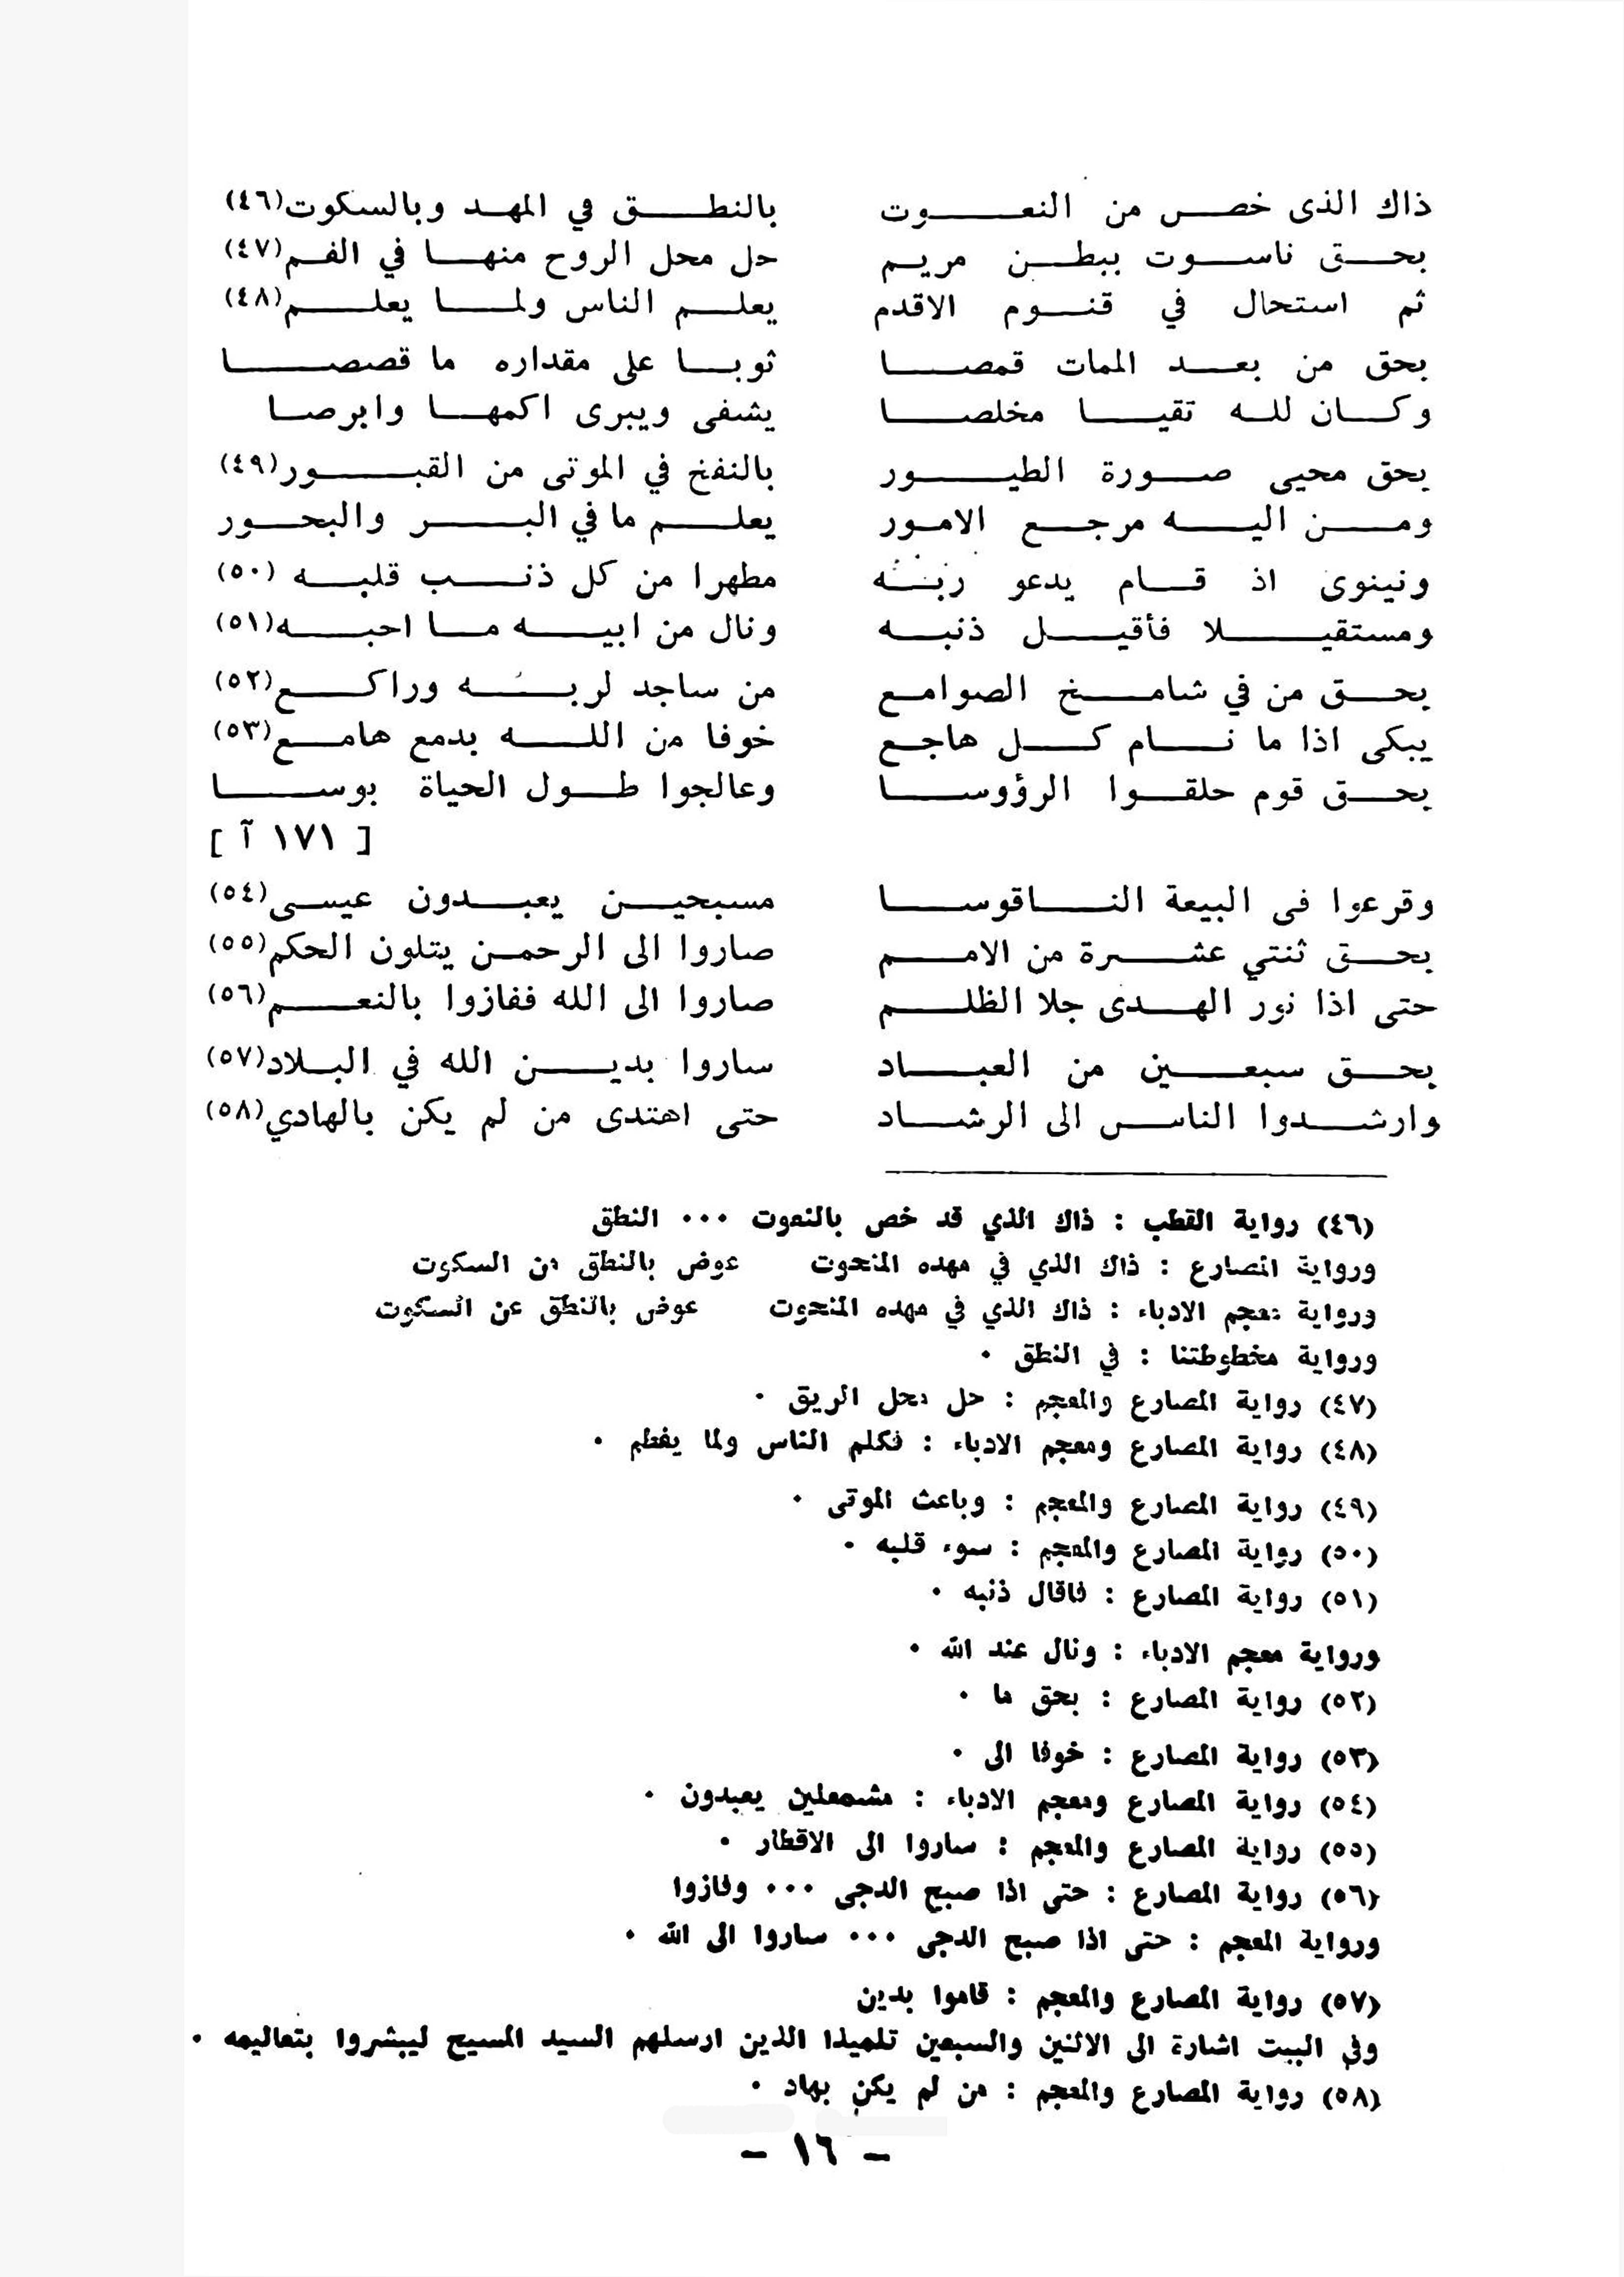 ذاك الذى خص من النعوت بالنطق في المهد وبالسكوت(٤٦)
بحق ناسوت ببطن مريم حل محل الروح منها في الفم(٤٧)
ثم استحال في قنوم الاقدم يعلم الناس ولما يعلم(٤٨)
بحق من بعد الممات قمصا ثوبا على مقداره ما قصصا
وكان لله تقيا مخلصا يشفى ويبرى اكمها وابرصا
بحق محيى صورة الطيور بالنفخ في الموتى من القبور(٤٩)
ومن اليه مرجع الامور يعلم ما في البر والبحور
ونينوى اذ قام يدعو ربه مطهرا من كل ذنب قلبه (٥٠)
ومستقيلا فأقيل ذنبه ونال من ابيه ما احبه(٥١)
بحق من في شامخ الصوامع من ساجد لربه وراكع(٥٢)
يبكى اذا ما نام كل هاجع خوفا من الله بدمع هامع(٥٣)
بحق قوم حلقوا الرؤوسا وعالجوا طول الحياة بوسا
[ ١٧١ آ ]
وقرعوا فى البيعة الناقوسا مسبحين يعبدون عيسى(٥٤)
بحق ثنتي عشرة من الامم صاروا الى الرحمن يتلون الحكم(٥٥)
حتى اذا نور الهدى جلا الظلم صاروا الى الله ففازوا بالنعم(٥٦)
بحق سبعين من العباد ساروا بدين الله في البلاد(٥٧)
وارشدوا الناس الى الرشاد حتى اهتدى من لم يكن بالهادي(٥٨)
(٤٦) رواية القطب : ذاك الذي قد خص بالنعوت ... النطق
ورواية المصارع : ذاك الذي في مهده المنحوت عوض بالنطق من السكوت
ورواية معجم الادباء : ذاك الذي في مهده المنحوت عوض بالنطق عن السكوت
ورواية مخطوطتنا : في النطق .
(٤٧) رواية المصارع والمعجم : حل محل الريق .
(٤٨) رواية المصارع ومعجم الادباء : فكلم الناس ولما يفطم .
(٤٩) رواية المصارع والمعجم : وباعث الموتى .
(٥٠) رواية المصارع والمعجم : سوء قلبه .
(٥١) رواية المصارع : فاقال ذنبه .
ورواية معجم الادباء : ونال عند الله .
(٥٢) رواية المصارع : بحق ما .
(٥٣) رواية المصارع : خوفا الى .
(٥٤) رواية المصارع ومعجم الادباء : مشمعلين يعبدون .
(٥٥) رواية المصارع والمعجم : ساروا الى الاقطار .
(٥٦) رواية المصارع : حتى اذا صبح الدجى ... وفازوا
ورواية المعجم : حتى اذا صبح الدجى ... ساروا الى الله .
(٥٧) رواية المصارع والمعجم : قاموا بدين
وفي البيت اشارة الى الاثنين والسبعين تلميذا الذين ارسلهم السيد المسيح ليبشروا بتعاليمه .
(٥٨) رواية المصارع والمعجم : من لم يكن بهاد .
- ١٦ -